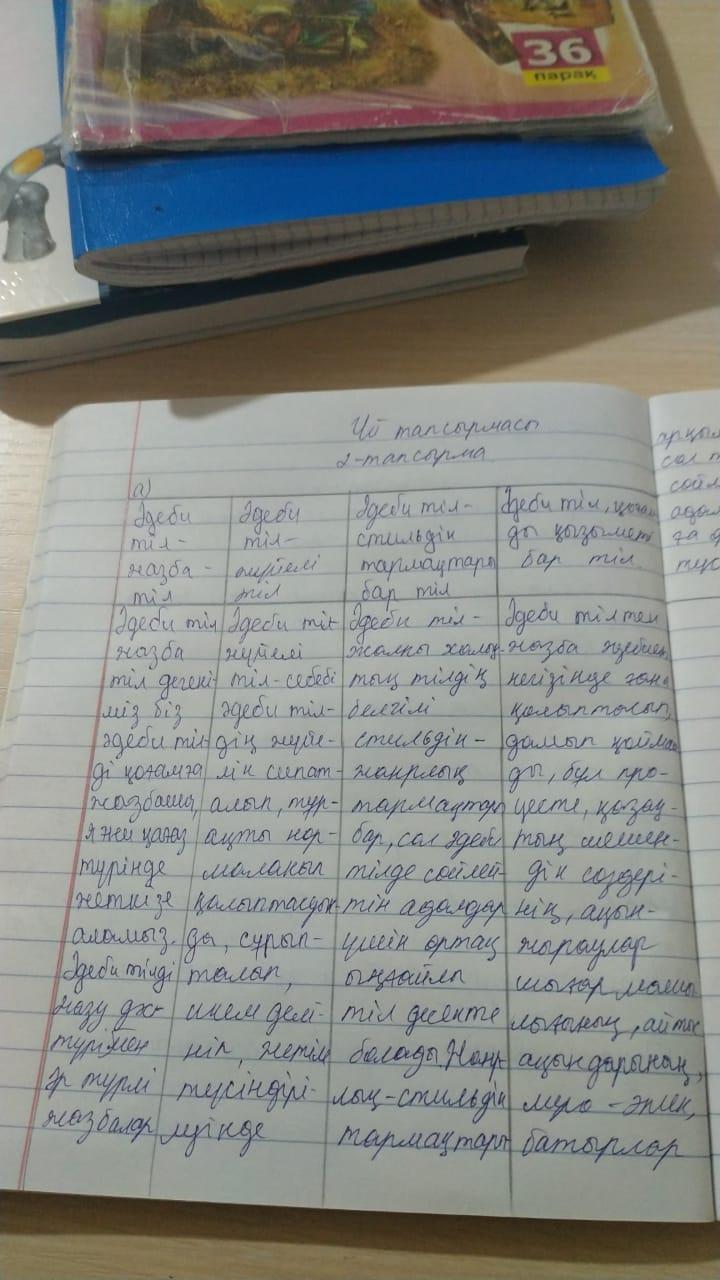 36
парақ
Үй тапсырмасы
2-тапсырма
а)
Әдеби
тіл-
жазба -
тіл
Әдеби
тіл-
жүйелі
тіл
Әдеби тіл-
стильдік
тармақтары
бар тіл
Әдеби тіл, қоғам
ды қызметі
бар тіл
Әдеби тіл
жазба
тіл дегені-
міз біз
әдеби тіл-
ді қоғамға
жазбаша,
яғни қағаз
түрінде
жеткізе
аламыз.
Әдеби тілді
жазу
түрімен
әр түрлі
жазбалар
Әдеби тіл-
жүйелі
тіл-себебі
әдеби тіл-
дің жүйе-
лік сипат-
алып, тұр-
ақты нор-
маланып
қалыптасқан-
ды, сұрып-
талап,
икемделі-
ніп, жетім
түсіндірі-
луінде
Әдеби тіл-
жалпы халық-
тық тілдің
белгілі
стильдік-
жанрлық
тармақтары
бар, сол әдеби
тілде сөйлей-
тін адамдар
үшін ортақ
ыңғайлы
тіл десекте
болады Жанр-
лық-стильдік
тармақтары
Әдеби тіл тек
жазба әдебиет
негізінде ғана
қалыптасып,
дамып қоймай
ды, бұл про-
цесте, қазақ-
тың шешен-
дік сөздері-
нің, ақын-
жыраулар
шығармашы
лығының, айтыс
ақындарының,
лиро - эпик,
батырлар
арқыл
сөйл
адам
ға
түс